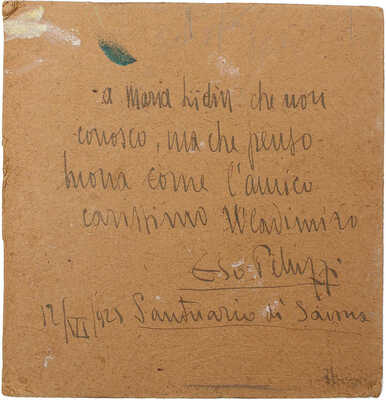 a Maria Lidin che non
conosco, ma che penso
buona come l'amico
carissimo Wladimiro
Eso Peluzzi
12/VII/925 Santuario di Savona